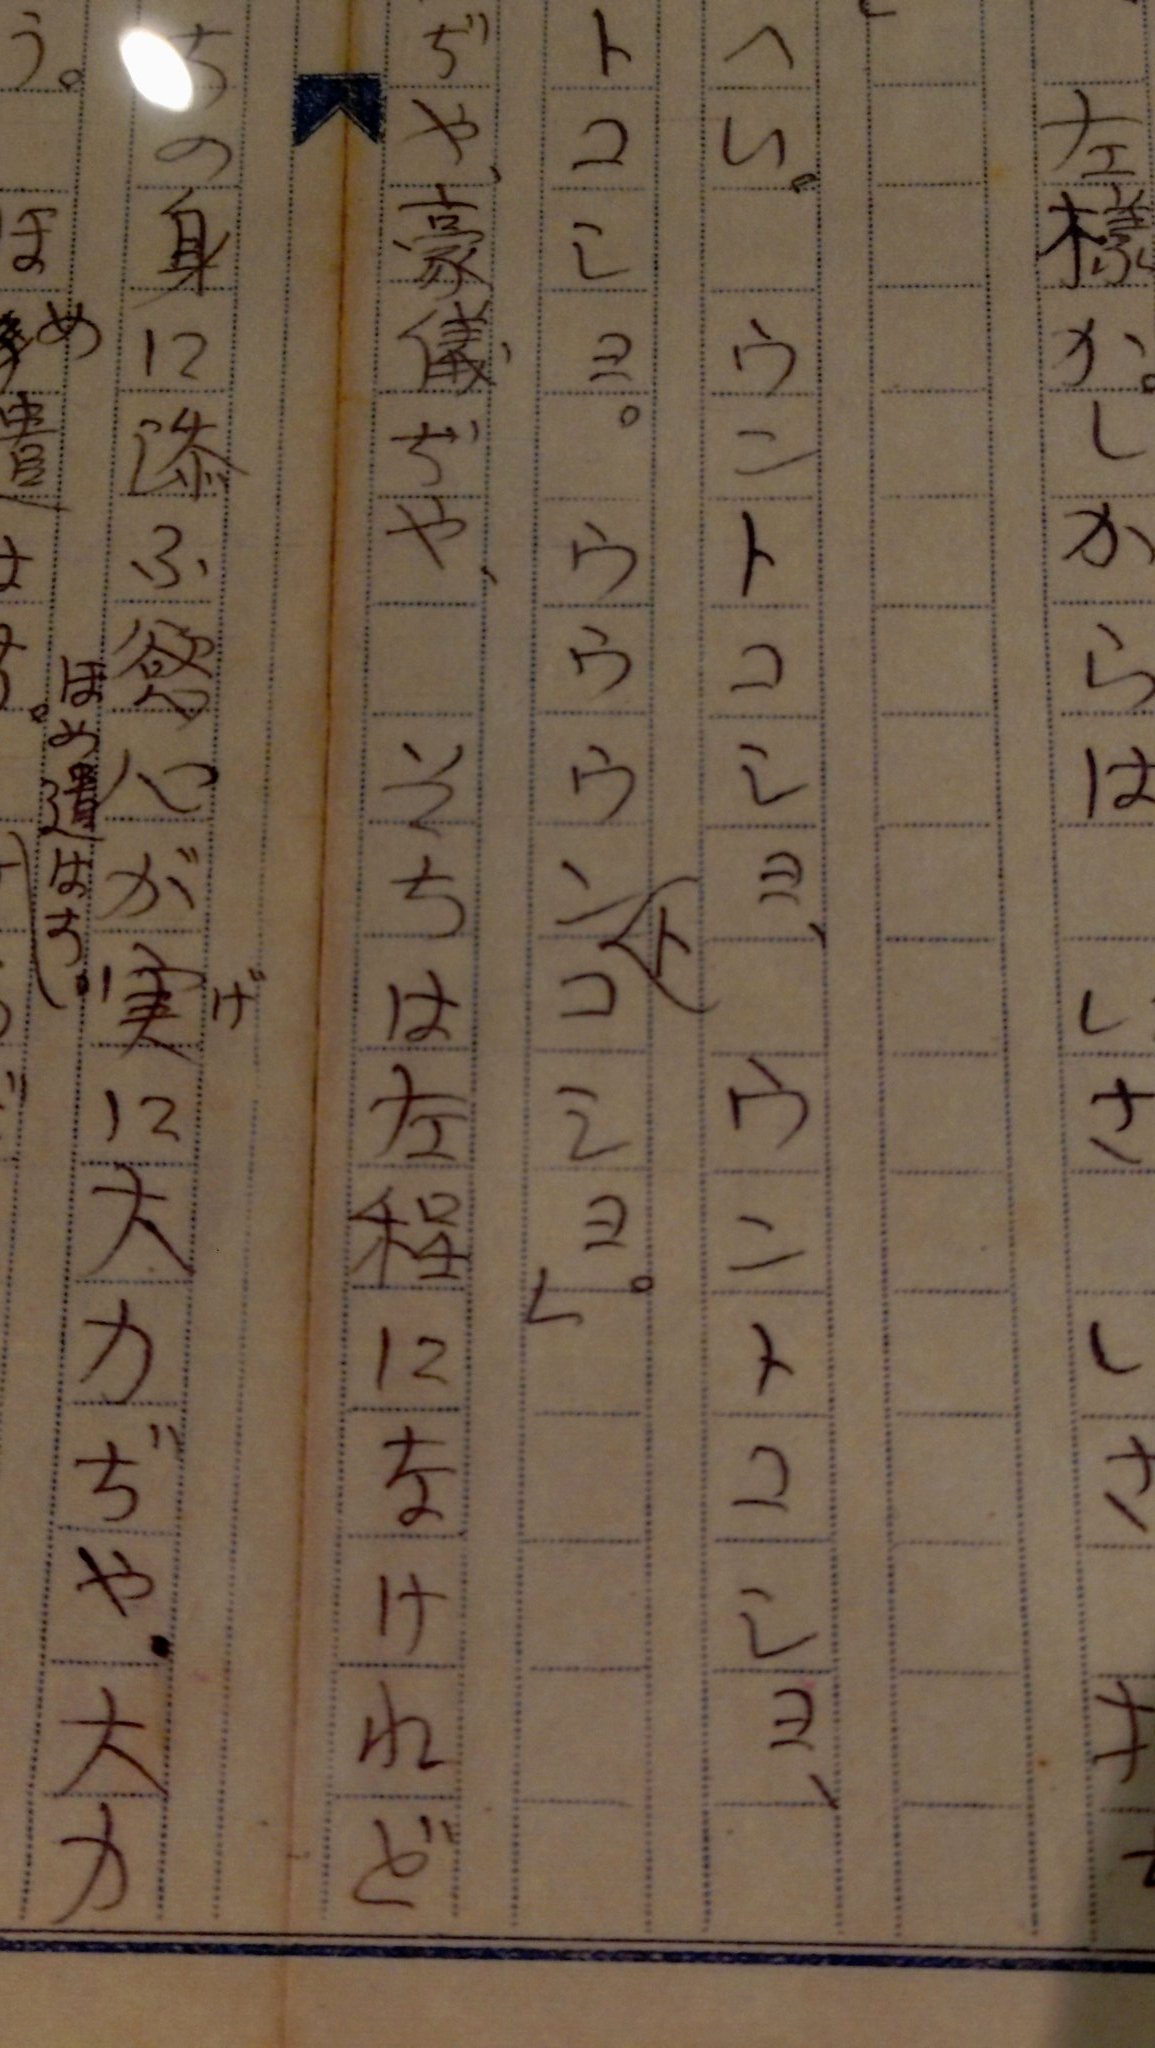 左様か。しからは いさ いさ
へい。 ウントコシヨ、 ウントコシヨ、
トコシヨ。 ウウウントコシヨ。」
ぢや、豪儀ぢや、 そちは左程になけれど
げ
ちの身に添ふ慾心が実に大力ぢや。大力
ほめ遣はす。
う。 ほめ遣はす。